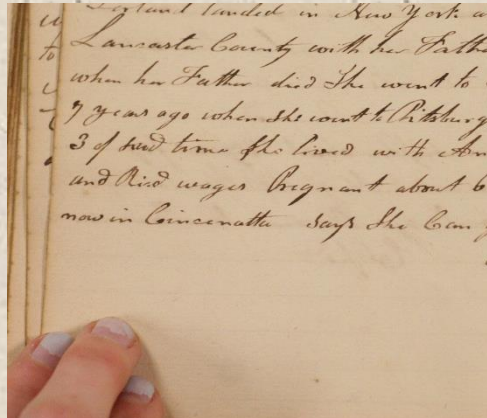 landed in New York
Lancaster County with her Fathe
when her Father died She went to
7 years ago when she went to Pitsburg
3 of said time She lived with An
and Rec'd wages Pregnant about 6
now in Cincenatta says She Can